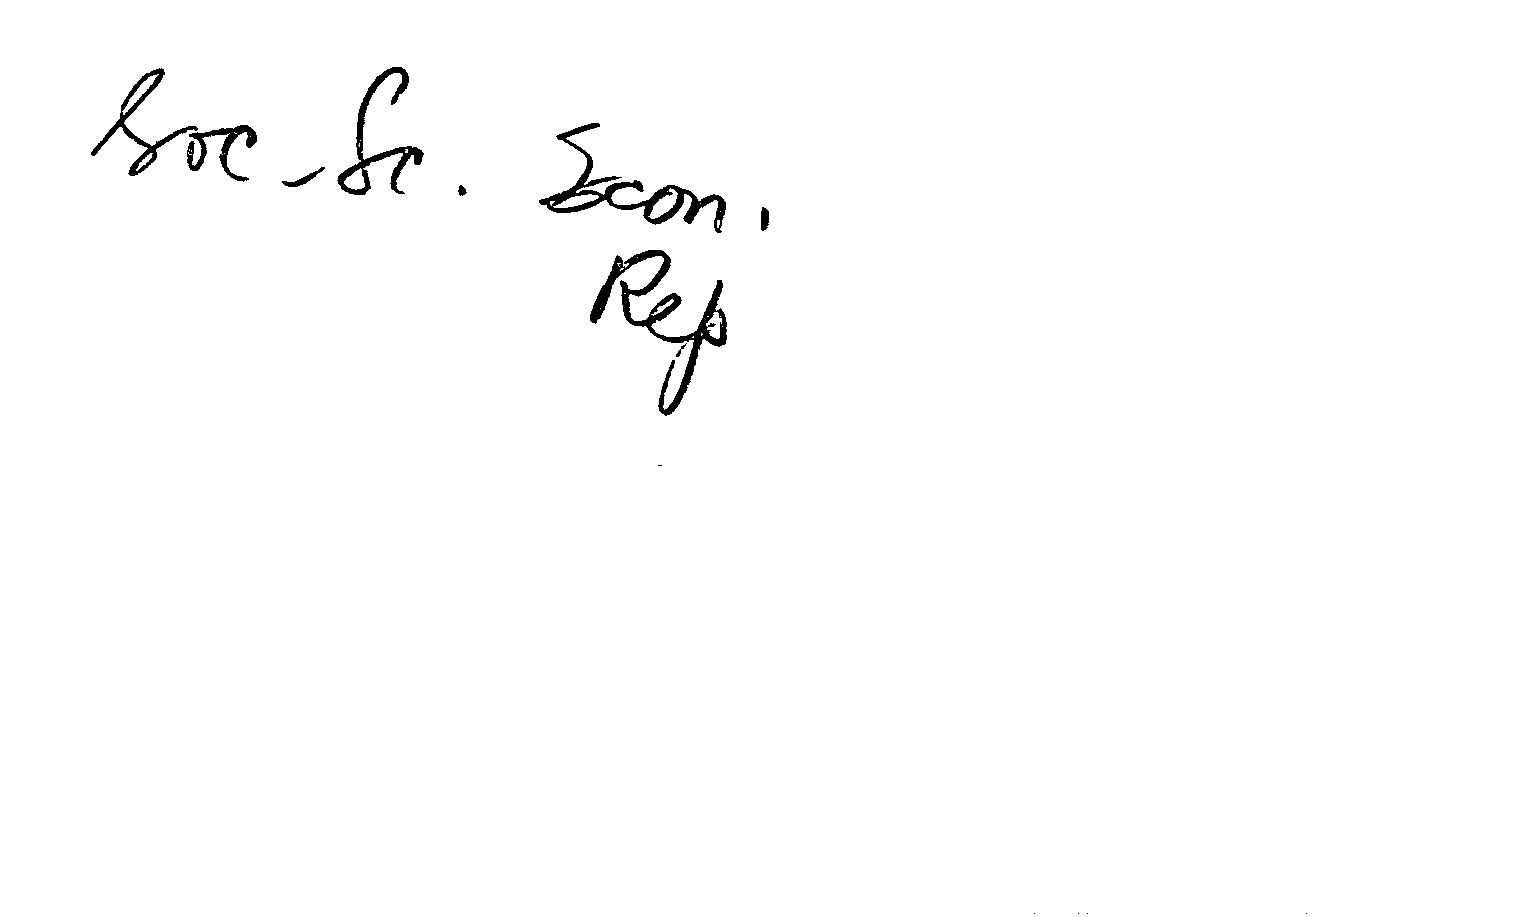 Soc-Sc. Econ.
Rep